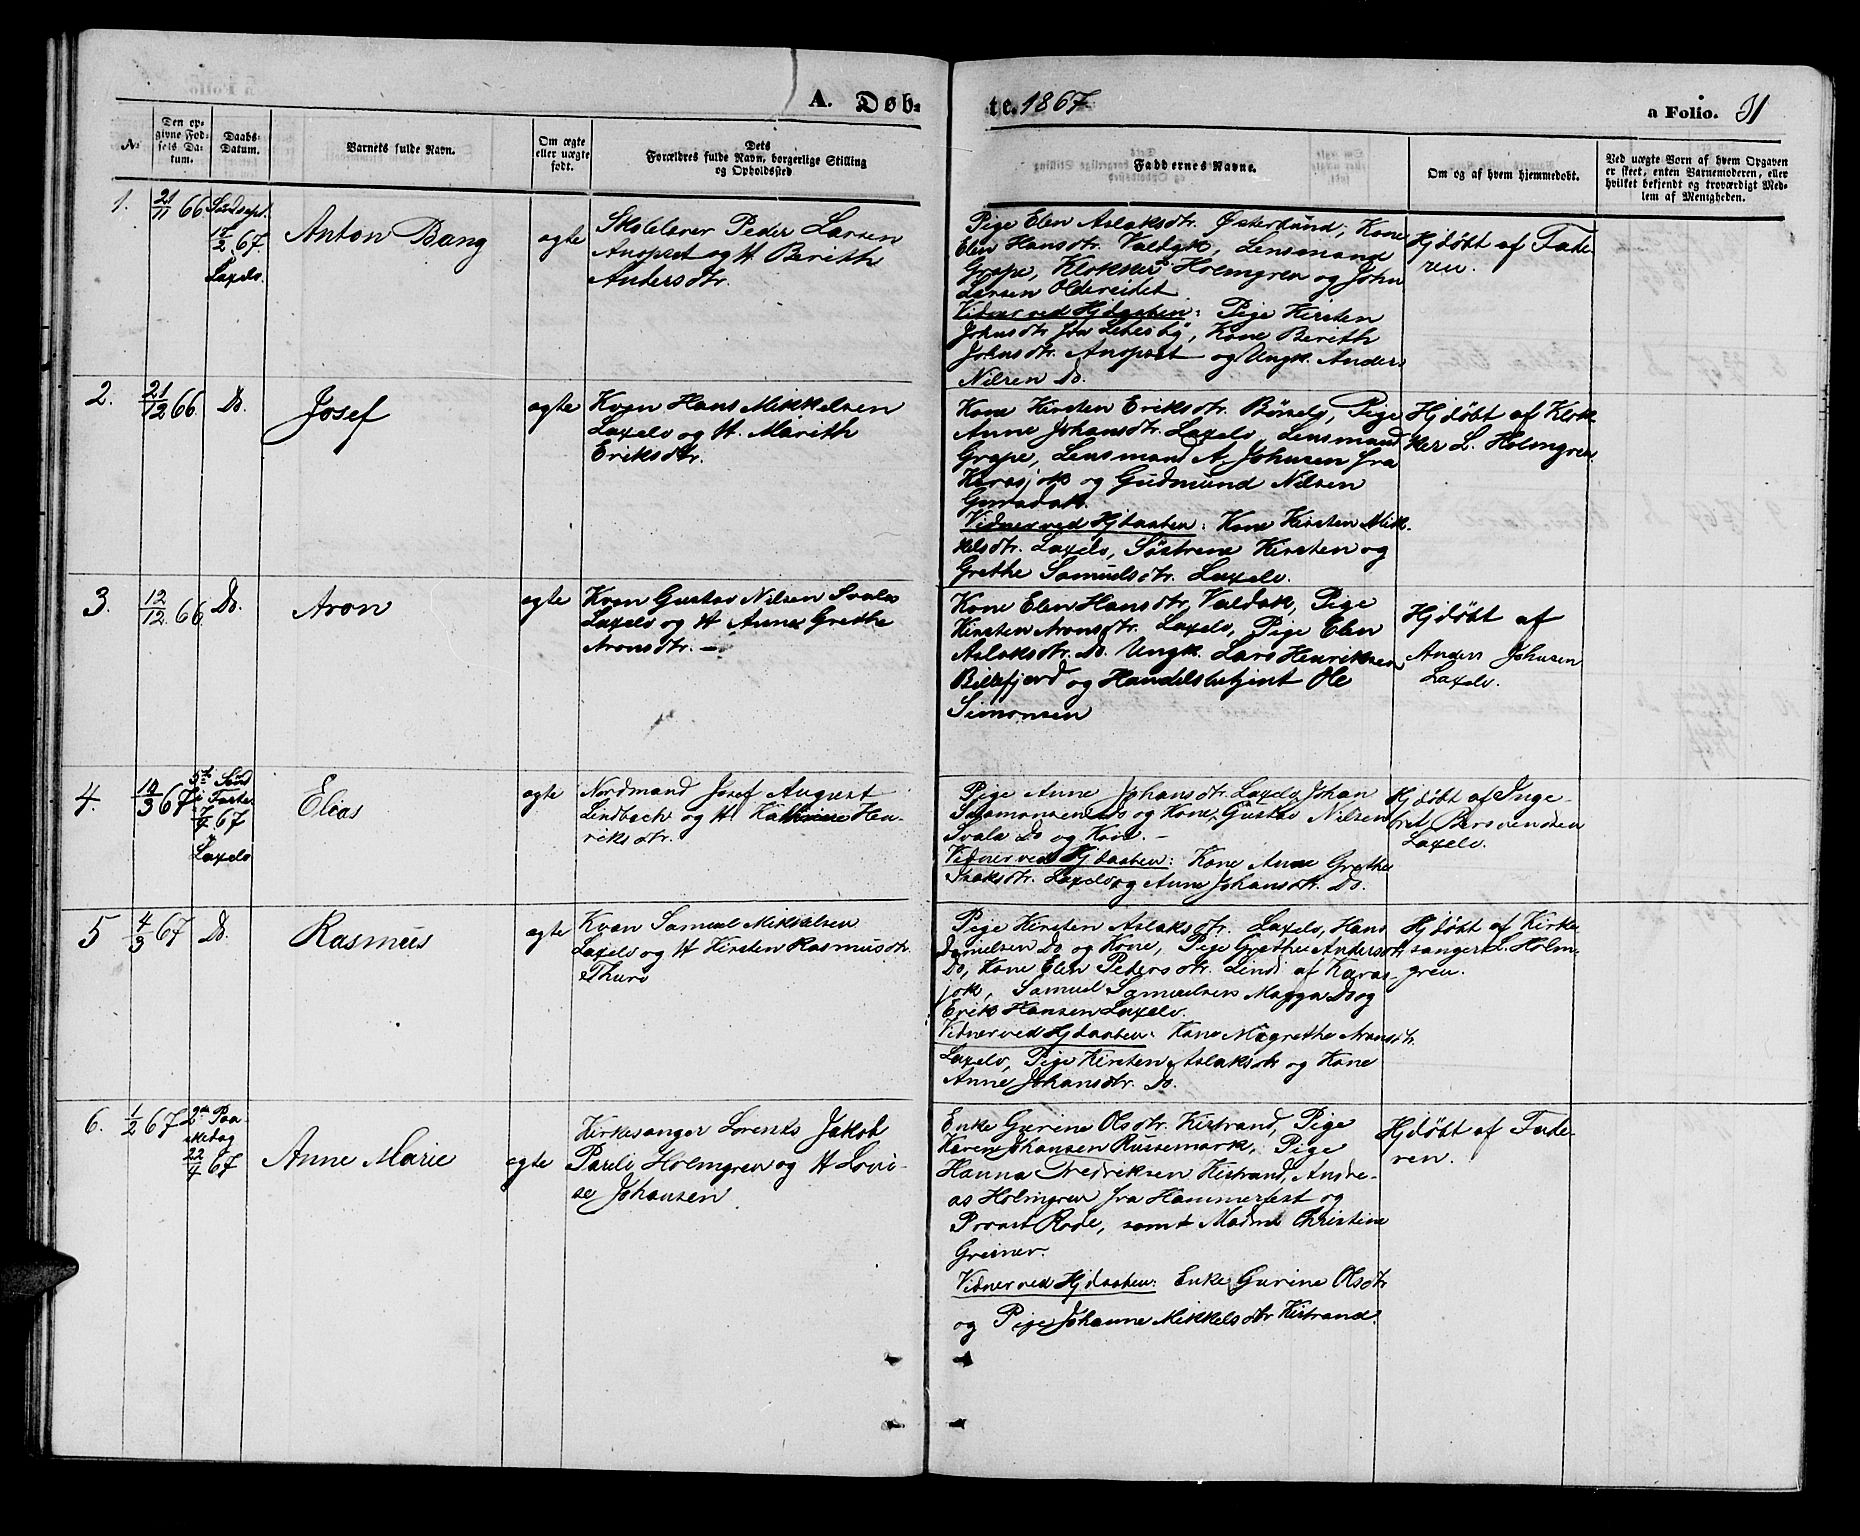 A. Døb-
te. 1867
a Folio. 31
No
Den op-
givne Fød-
sels Da-
tum.
Daabs-
Datum.
Barnets fulde Navn.
Om ægte
eller uægte
født.
Dets
Forældres fulde Navn, borgerlige Stilling
og Opholdssted.
Faddernes Navne.
Om og af hvem hjemmedøbt.
Ved uægte Børn af hvem Opgaven
er skeet, enten Barnemoderen, eller
hvilket bekjendt og troværdigt Med-
lem af Menigheden.
1.
21/11 66
67.
Laxelv.
Anton Bang
ægte
Skolelærer Peder Larsen
og H. Berith
Andersdtr.
Pige Elen Aslaksdtr. Østerbund, Kone
Elen Hansdtr. Valdak, Lensmand
Grape, Klokker Holmgren og John
Larsen Oldereidet
Vidner ved Hjdaaben: Pige Kirsten
Johnsdtr. fra Lebesby, Kone Berith
Johnsdtr. og Ungk. Anders
Nilsen Do.
Hjdøbt af Fade-
ren.
2.
21/12 66
Do.
Josef
ægte
Kvæn Hans Mikkelsen
Laxelv og H. Marith
Eriksdtr.
Kone Kirsten Eriksdtr. Børselv, Pige
Anne Johansdtr. Laxelv, Lensmand
Grape, Lensmand A. Johnsen fra
Karasjok og Gudmund Nilsen
Vidner ved Hjdaaben: Kone Kirsten Mik-
kelsdtr. Laxelv, Søstrene Kirsten og
Grethe Samuelsdtr. Laxelv.
Hjdøbt af Klok-
ker L. Holmgren.
3.
12/12 66
Do.
Aron
ægte
Kvæn Gustav Nilsen Svala
Laxelv og H Anna Grethe
Aronsdtr. —
Kone Elen Hansdtr, Valdak, Pige
Kirsten Aronsdtr. Laxelv, Pige Elen
Aslaksdtr. Do. Ungk. Lars Henriksen
Billefjord og Handelsbetjent Ole
Simonsen
Hjdøbt af
Anders Johnsen
Laxelv.
4.
10/3 67
5te Sønd
i Faste
7/4 67
Laxelv
Elias
ægte
Nordmand Josef August
Lindbach og H Kathrine Hen-
riksdtr.
Pige Anne Johansdtr. Laxelv, Johan
Salamonsen Do og Kone, Gustav Nilsen
Svala Do og Kone. —
Vidner ved Hjdaaben: Kone Anne Grethe
Isaksdtr. Laxelv og Anne Johansdtr. Do.
Hjdøbt af Inge-
bret Bersvendsen
Laxelv.
5
4/3 67
Do.
Rasmus
ægte
Kvæn Samuel Mikkelsen
Laxelv og H Kirsten Rasmusdtr.
Thuro
Pige Kirsten Aslaksdtr. Laxelv, Hans
Danielsen Do og Kone, Pige Grethe Andersdtr
Do, Kone Elen Pedersdtr. Lindi af Karas-
jok, Samuel Samuelsen Magga Do og
Erik Hansen Laxelv.
Vidner ved Hjdaaben: Kone Magrethe Aronsdtr.
Laxelv, Pige Kirsten Aslaksdtr og Kone
Anne Johansdtr. Do.
Hjdøbt af Kirke-
sanger L. Holm-
gren.
6.
1/2 67
2den Paa-
skedag
22/4 67
Anne Marie
ægte
Kirkesanger Lorents Jakob
Pauli Holmgren og H Lovi-
se Johansen
Enke Gurine Olsdtr. Kistrand, Pige
Karen Johansen Russemark, Pige
Hanna Fredriksen Kistrand, Andre-
as Holmgren fra Hammerfest og
Provst Rode, samt Madme Christine
Greiner.
Vidner ved Hjdaaben: Enke Gurine Olsdtr
og Pige Johanne Mikkelsdtr Kistrand.
Hjdøbt af Fade-
ren.